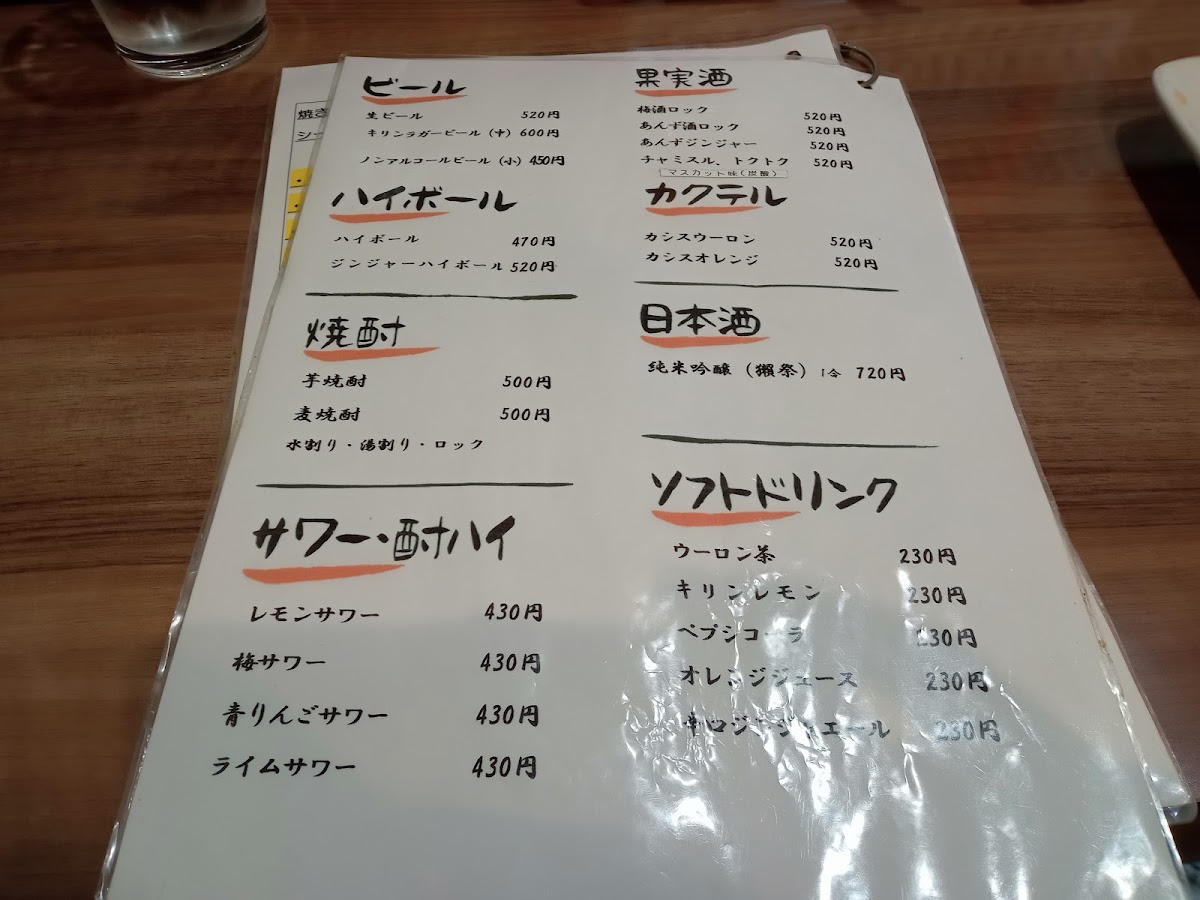 ビール
生ビール 520円
キリンラガービール (中) 600円
ノンアルコールビール (小) 450円
ハイボール
ハイボール 470円
ジンジャーハイボール 520円
焼酎
芋焼酎 500円
麦焼酎 500円
水割り・湯割り・ロック
サワー・酎ハイ
レモンサワー 430円
梅サワー 430円
青りんごサワー 430円
ライムサワー 430円
果実酒
梅酒ロック 520円
あんず酒ロック 520円
あんずジンジャー 520円
チャミスル、トクトク 520円
マスカット味(炭酸)
カクテル
カシスウーロン 520円
カシスオレンジ 520円
日本酒
純米吟醸 (獺祭) 1合 720円
ソフトドリンク
ウーロン茶 230円
キリンレモン 230円
ペプシコーラ 230円
オレンジジュース 230円
辛口ジンジャエール 230円
焼き
シー